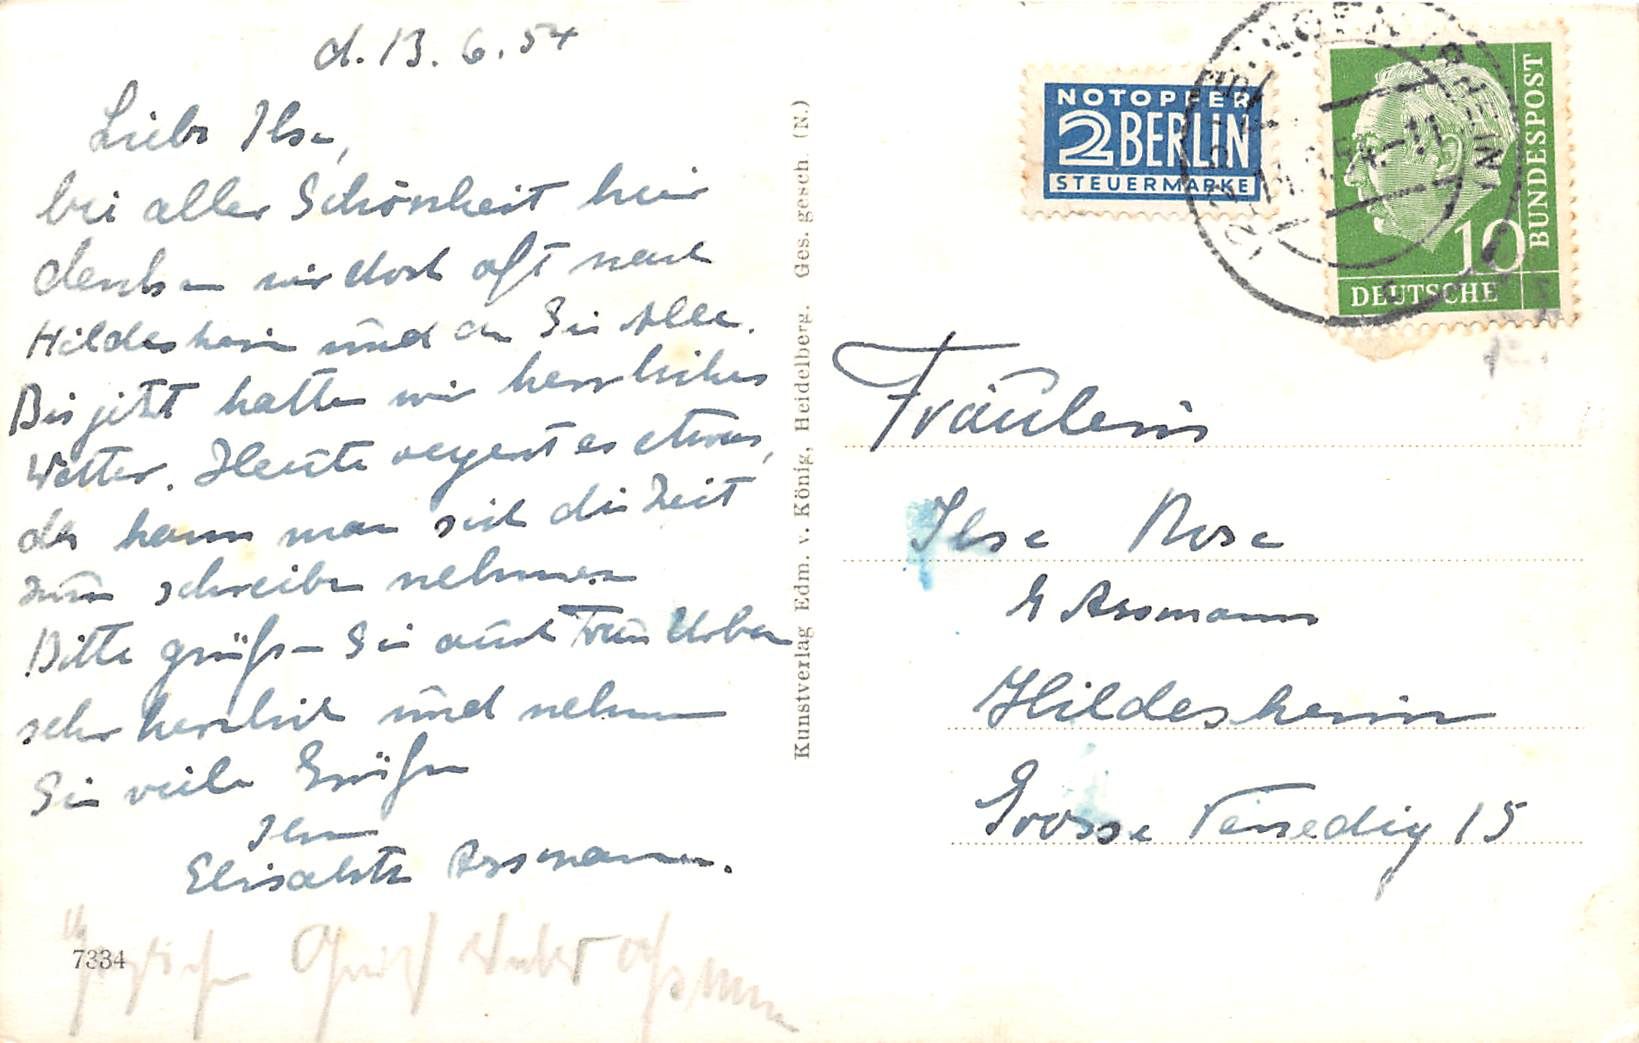 d. 13. 6. 54
Liebe Ilse,
bei aller Schönheit hier
denken wir doch oft nach
Hildesheim und an Sie Alle.
Bis jetzt hatten wir herrliches
Wetter. Heute regent es etwas,
da kann man sich die Zeit
zum schreiben nehmen
Bitte grüßen Sie auch Frau
sehr herzlich und nehmen
Sie viele Grüße
Ihre
Elisabeth Assmann.
Gruß
7334
Kunstverlag Edm. v. König, Heidelberg. Ges. gesch. (N.)
NOTOPFER
2 BERLIN
STEUERMARKE
10
DEUTSCHE
BUNDESPOST
Fräulein
Ilse Rose
Assmann
Hildesheim
Grosse Venedig 15